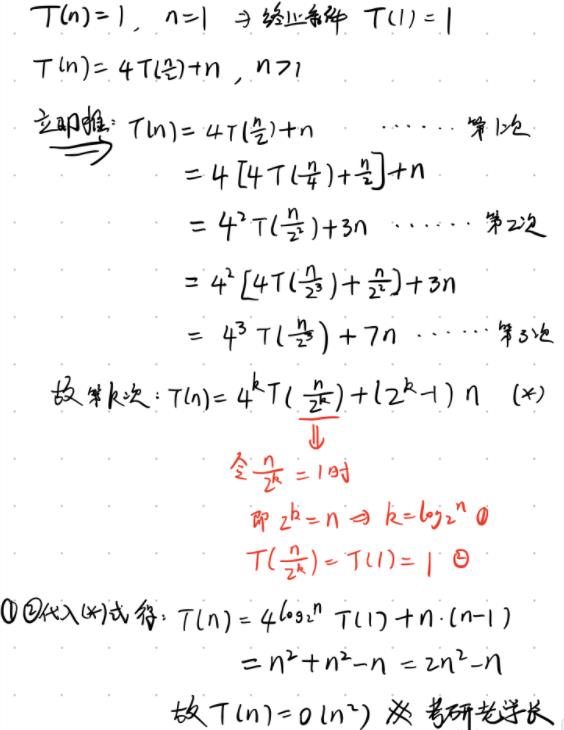 T(n)=1, n=1 ⇒ 终止条件 T(1)=1
T(n)=4T(n/2)+n, n>1
立即推: T(n)=4T(n/2)+n ······ 第1次
=4[4T(n/4)+n/2]+n
=4²T(n/2²)+3n ······ 第2次
=4²[4T(n/2³)+n/2²]+3n
=4³T(n/2³)+7n ······ 第3次
故第k次: T(n)=4^kT(n/2^k)+(2^k-1)n (*)
⇓
令 n/2^k=1时
即 2^k=n ⇒ k=log₂n ①
T(n/2^k)=T(1)=1 ②
①②代入(*)式得: T(n)=4^log₂n T(1)+n·(n-1)
=n²+n²-n=2n²-n
故T(n)=O(n²) ※ 考研老学长